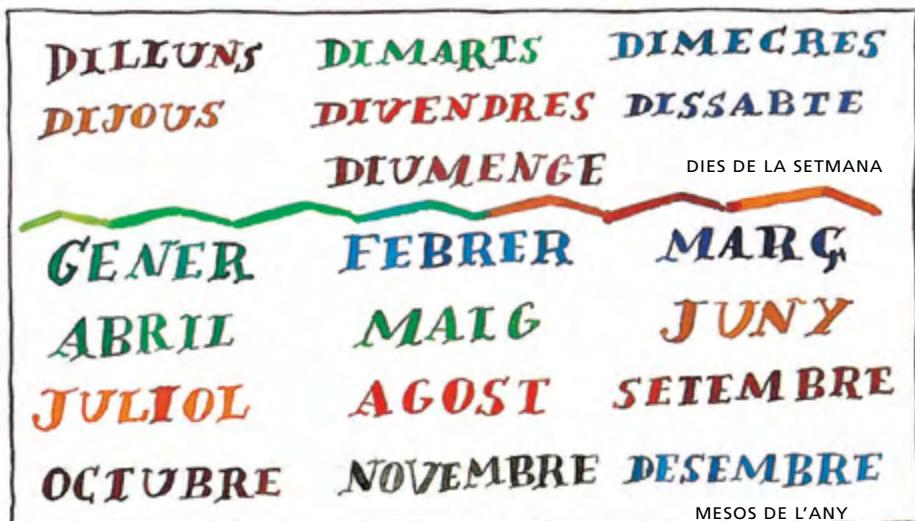 DILLUNS DIMARTS DIMECRES
DIJOUS DIVENDRES DISSABTE
DIUMENGE
DIES DE LA SETMANA
GENER FEBRER MARÇ
ABRIL MAIG JUNY
JULIOL AGOST SETEMBRE
OCTUBRE NOVEMBRE DESEMBRE
MESOS DE L'ANY